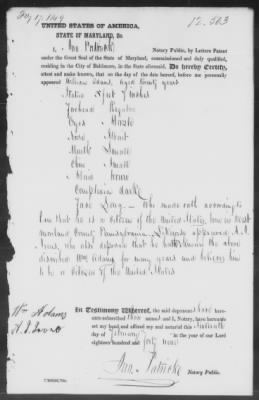 Feby 17, 1849
12.563
UNITED STATES OF AMERICA,
STATE OF MARYLAND, Sc.
I, Jno. Patrick Notary Public, by Letters Patent
under the Great Seal of the State of Maryland, commissioned and duly qualified,
residing in the City of Baltimore, in the State aforesaid, Do hereby Certify,
attest and make known, that on the day of the date hereof, before me personally
appeared William Adams, Aged twenty years
Stature 5 feet 7 inches
Forehead Regular
Eyes Hazle
Nose Short
Mouth Small
Chin Small
Hair Brown
Complexion dark
Face Long – Who made oath according to
Law that he is a citizen of the United States, born in West
moreland County Pennsylvania – &
who also deposeth that he
for many years and believes him
to be a citizen of the United States
Wm Adams
In Testimony Whereof, the said deponents have here-
unto subscribed their names and I, Notary, have hereunto
set my hand and affixed my notarial
day of February in the year of our Lord
eighteen hundred and forty nine
Jno. Patrick
Notary Public.